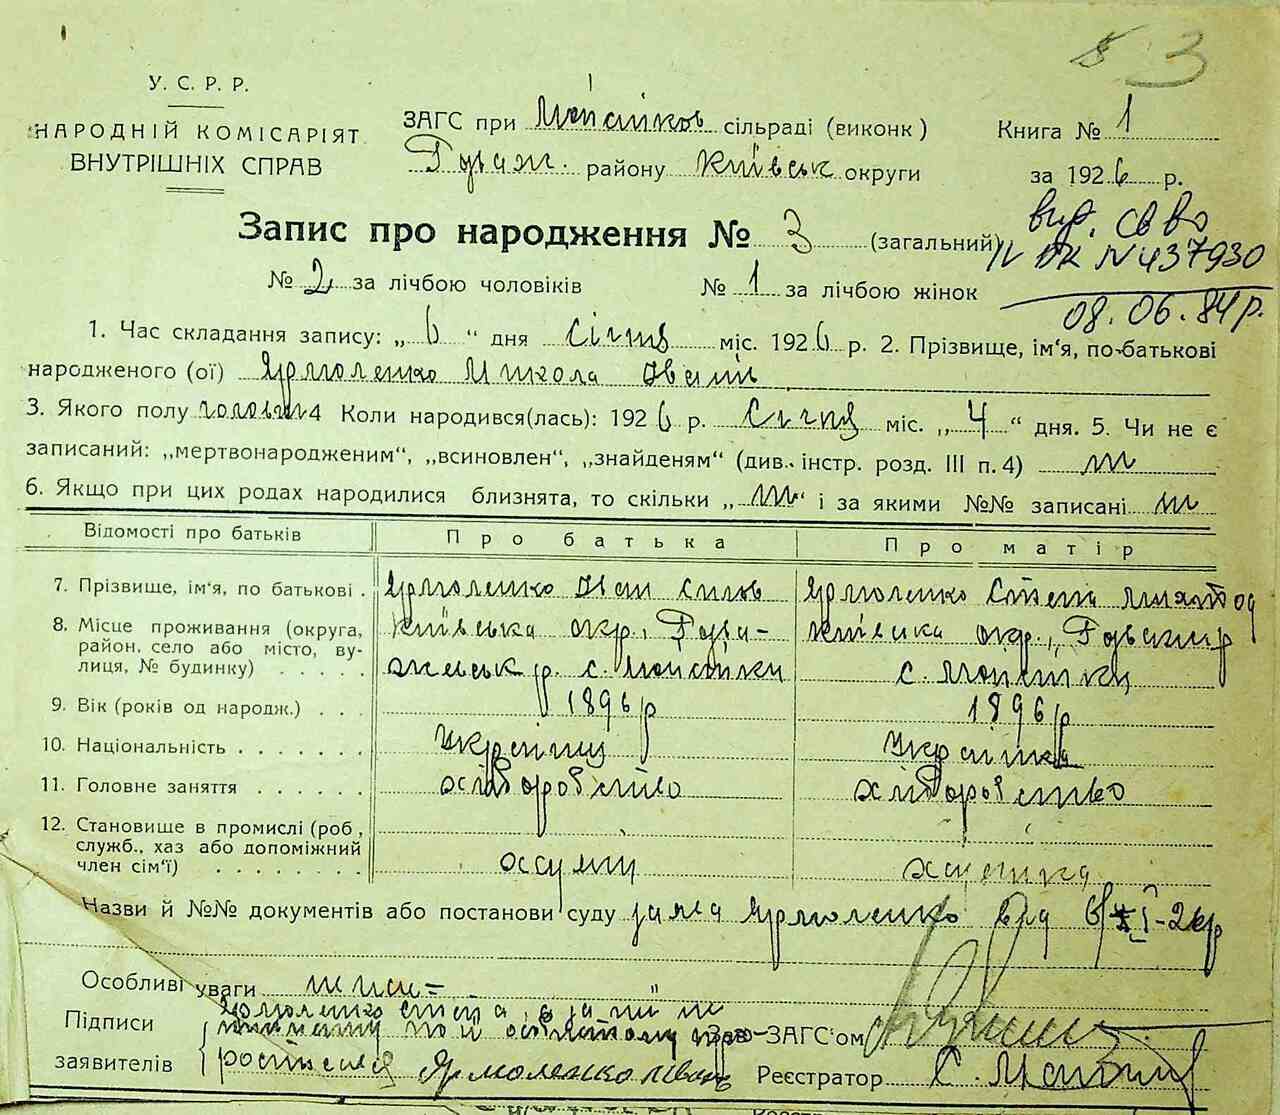 3
У. С. Р. Р.
НАРОДНІЙ КОМІСАРІЯТ
ВНУТРІШНІХ СПРАВ
ЗАГС при Мойсійков сільраді (виконк)
района району Київськ округи
Книга № 1
за 1926 р.
Запис про народження № 3 (загальний)
вид. св во
N 437930
08.06.84р.
№ 2 за лічбою чоловіків № 1 за лічбою жінок
1. Час складання запису: „ 6 “ дня січня міс. 1926 р. 2. Прізвище, ім‘я, по-батькові
народженого (ої) Ярмоленко Микола Іванів
3. Якого полу чоловіч 4 Коли народився(лась): 1926 р. Січня міс. „ 4 “ дня. 5. Чи не є
записаний: „мертвонародженим“, „всиновлен“, „знайденям“ (див. інстр. розд. III п. 4) ні
6. Якщо при цих родах народилися близнята, то скільки „ ні “ і за якими №№ записані ні
Відомості про батьків
Про батька
Про матір
7. Прізвище, ім‘я, по батькові . Ярмоленко Іван Ярмоленко
8. Місце проживання (округа,
район, село або місто, ву-
лиця, № будинку) . . . . .
Київська окр., с. Мойсійки
Київська окр., с. Мойсійки
9. Вік (років од народж.) . . . 1896р 1896р
10. Національність . . . . . . . Українец Українка
11. Головне заняття . . . . . . хлібороб хлібороб
12. Становище в промислі (роб,
служб., хаз або допоміжний
член сім‘ї) . . . . . . . .
Назви й №№ документів або постанови суду заява Ярмоленко
Особливі уваги
Підписи
заявителів
розписався Ярмоленко Іван
Зав-ЗАГС‘ом
Реєстратор С.